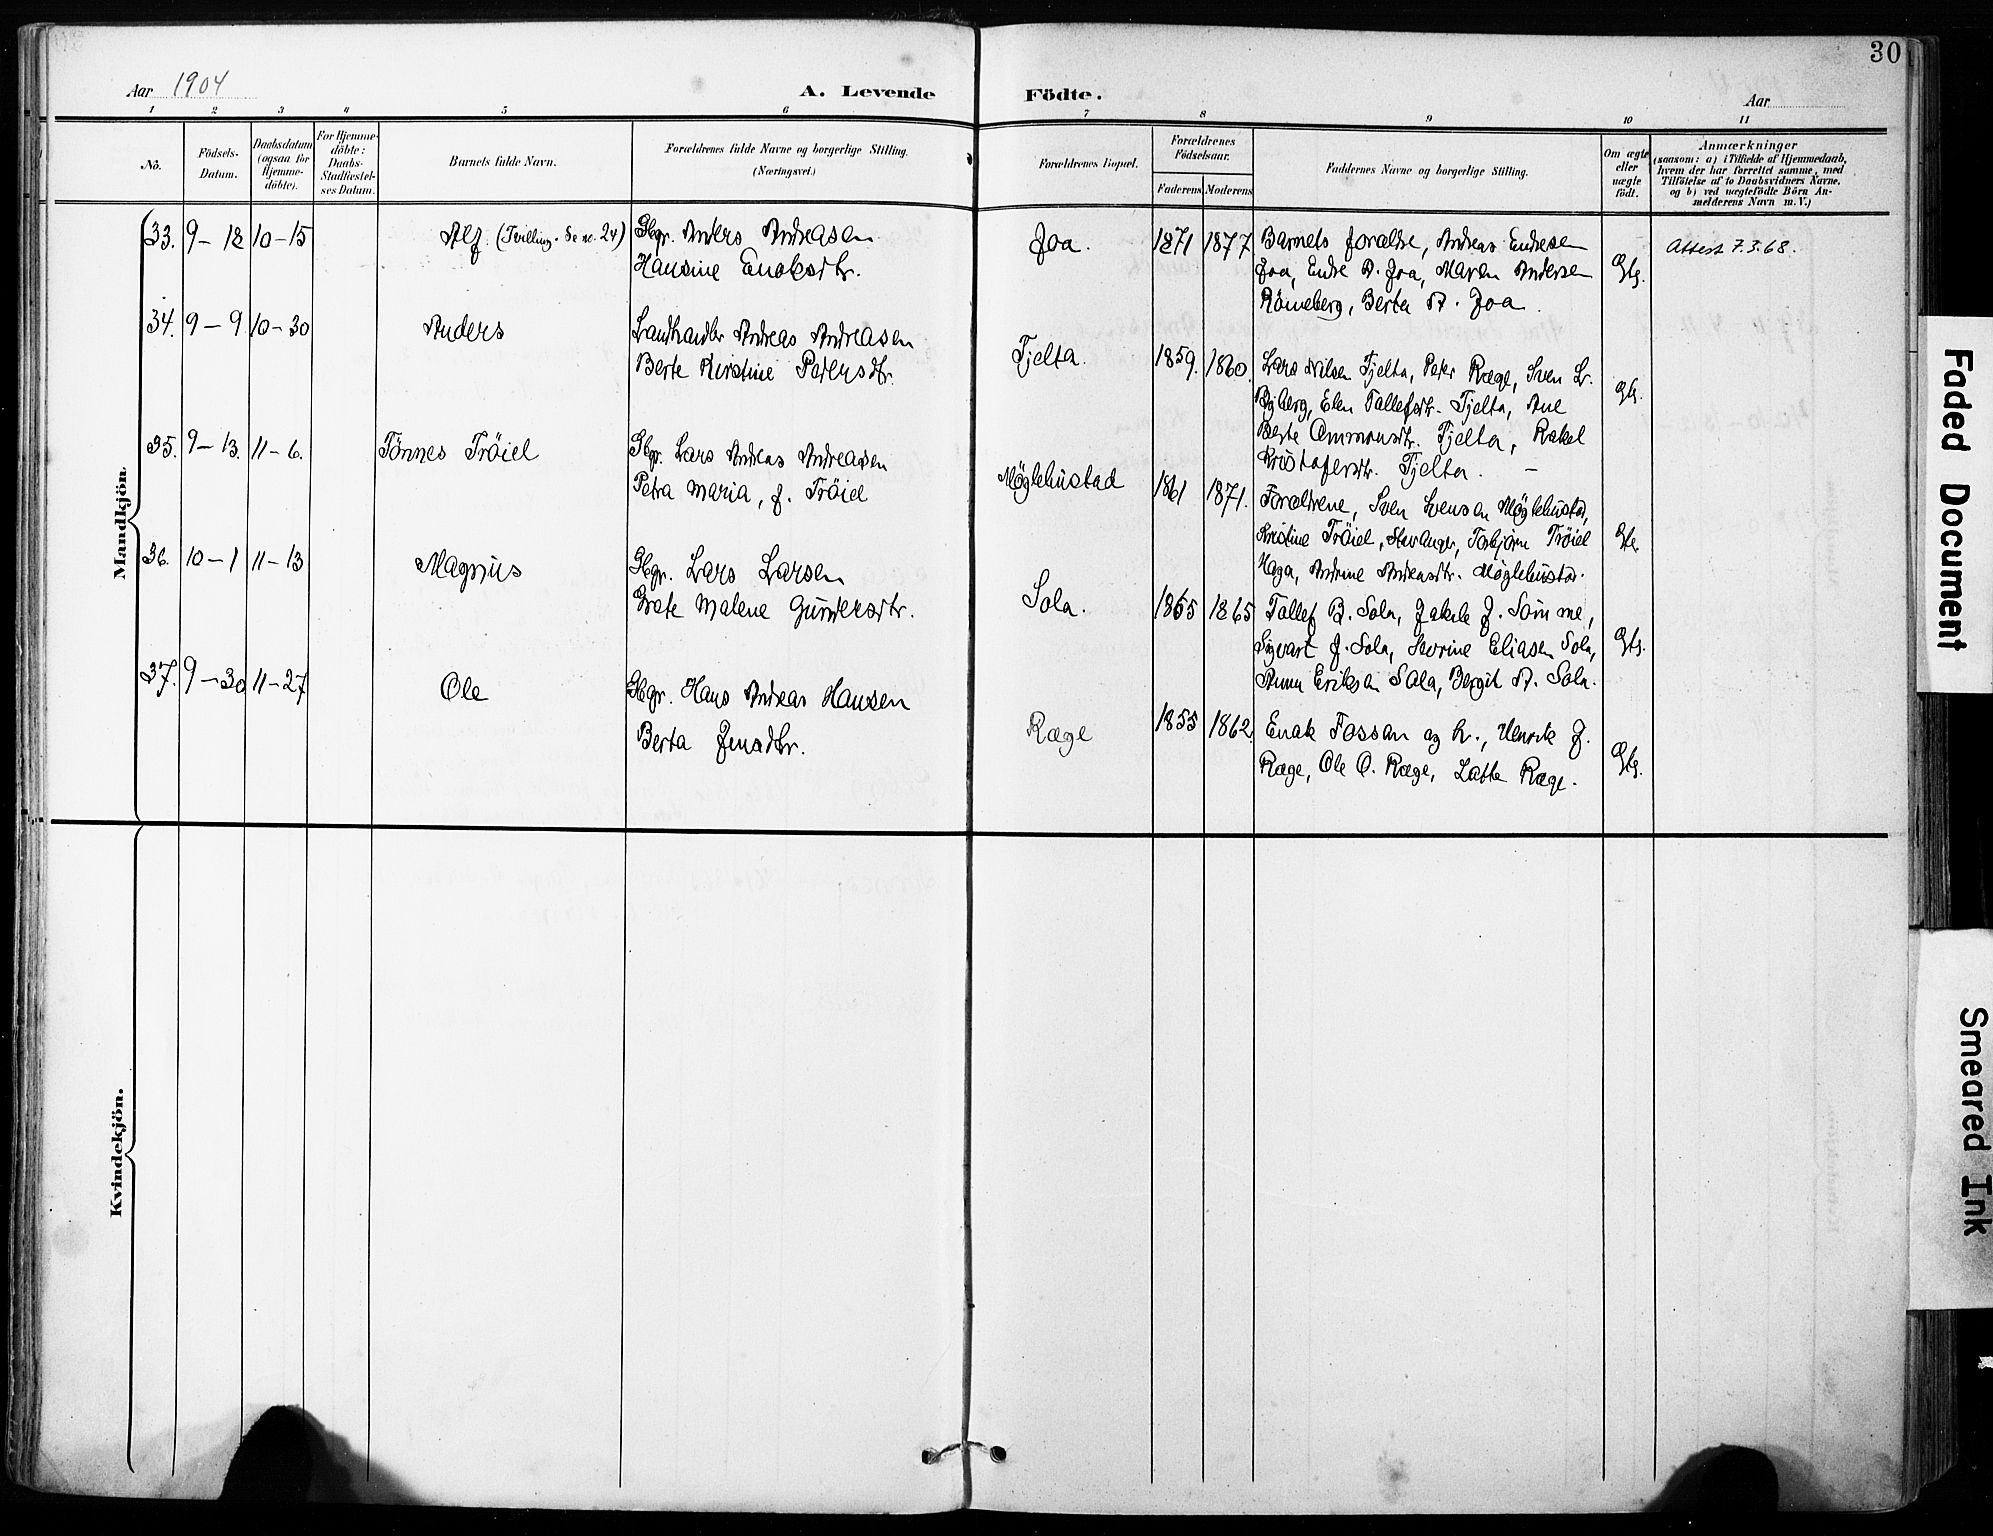 30
Aar 1904
A. Levende Födte.
Aar
1 2 3 4 5 6 7 8 9 10 11
No.
Födsels-
Datum.
Daabsdatum
(ogsaa for
Hjemme-
döbte).
For Hjemme-
döbte:
Daabs-
Stadfæstel-
ses Datum.
Barnets fulde Navn.
Forældrenes fulde Navne og borgerlige Stilling.
(Næringsvei.)
Forældrenes Bopæl.
Forældrenes
Födselsaar.
Faderens Moderens
Faddernes Navne og borgerlige Stilling.
Om ægte
eller
uægte
födt.
Anmærkninger
(saasom: a) i Tilfælde af Hjemmedaab,
hvem der har forrettet samme, med
Tilföielse af to Daabsvidners Navne,
og b) ved uægtefödte Börn An-
melderens Navn m. V.)
Mandkjön.
33. 9-12 10-15 Alf. (Tvilling. Se no. 24) Gbgr. Anders Andreasen
Hansine Enoksdtr.
Joa. 1871 1877 Barnets forældre, Andreas Endresen
Joa, Endre A. Joa, Maren Andersen
Rönneberg, Berta A. Joa.
Gtg.
Attest 7.3.68.
34. 9-9 10-30 Anders Landhandler Andreas Andreasen
Berte Kirstine Petersdtr.
Tjelta. 1859. 1860. Lars Nilsen Tjelta, Peter Ræge, Sven L.
Byberg, Elen Tallefsdtr. Tjelta, Ane
Berte Ommonsdtr. Tjelta, Rakel
Kristofersdtr. Tjelta. -
Gtg.
35. 9-13. 11-6. Tönnes Tröiel Gbgr. Lars Andreas Andreasen
Petra Maria, f. Tröiel
Möglehustad 1861 1871. Forældrene, Sven Svenson Möglehustad,
Kristine Tröiel, Stavanger, Torbjörn Tröiel
Haga, Andrine Andreasdtr. Möglehustad.
Gtg.
36. 10-1 11-13 Magnus Gbgr. Lars Larsen
Grete Malene Gundersdtr.
Sola. 1865 1865 Tallef B. Sola, Jakob J. Sömme,
Sigvart J. Sola, Severine Eliasen Sola,
Anna Eriksen Sola, Bergit A. Sola.
Gtg.
37. 9-30 11-27 Ole Gbgr. Hans Andreas Hansen
Berta Jensdtr.
Ræge 1855 1862. Enok Fossan og h., Henrik J.
Ræge, Ole O. Ræge, Lotte Ræge.
Gtg.
Kvindekjön.
Faded Document
Smeared Ink